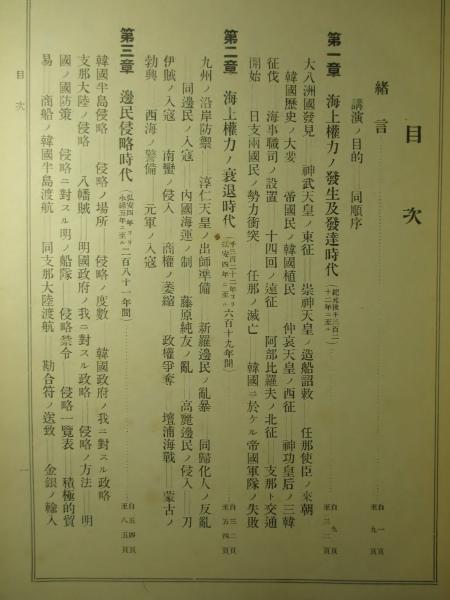 目次
緒言
自一頁
至九頁
講演ノ目的 同順序
第一章 海上權力ノ發生及發達時代
自九頁
至三二頁
大八洲國發見 神武天皇ノ東征 崇神天皇ノ造船詔敕 任那使臣ノ來朝
韓國歷史ノ大要 帝國民ノ韓國植民 仲哀天皇ノ西征 神功皇后ノ三韓
征伐 海事職司ノ設置 十四回ノ遠征 阿部比羅夫ノ北征 支那ト交通
開始 日支兩國民ノ勢力衝突 任那ノ滅亡 韓國ニ於ケル帝國軍隊ノ失敗
第二章 海上權力ノ衰退時代(千三百二十二年ヨリ弘安四年ニ至ル六百十九年間)
自三二頁
至五四頁
九州ノ沿岸防禦 淳仁天皇ノ出師準備 新羅邊民ノ亂暴 同歸化人ノ反亂
同邊民ノ入寇 內國海運ノ制 藤原純友ノ亂 高麗邊民ノ侵入 刀
伊賊ノ入寇 南蠻ノ侵入 商權ノ萎縮 政權爭奪 壇浦海戰 蒙古ノ
勃興 西海ノ警備 元軍ノ入寇
第三章 邊民侵略時代(弘安四年ヨリ永祿五年ニ至ル二百八十一年間)
自五四頁
至八五頁
韓國半島侵略 侵略ノ場所 侵略ノ度數 韓國政府ノ我ニ對スル政略
支那大陸ノ侵略 八幡賊 明國政府ノ我ニ對スル政略 侵略ノ方法 明
國ノ國防策 侵略ニ對スル明ノ船隊 侵略禁令 侵略一覽表 積極的貿
易 商船ノ韓國半島渡航 同支那大陸渡航 勘合符ノ送致 金銀ノ輸入
目次
一